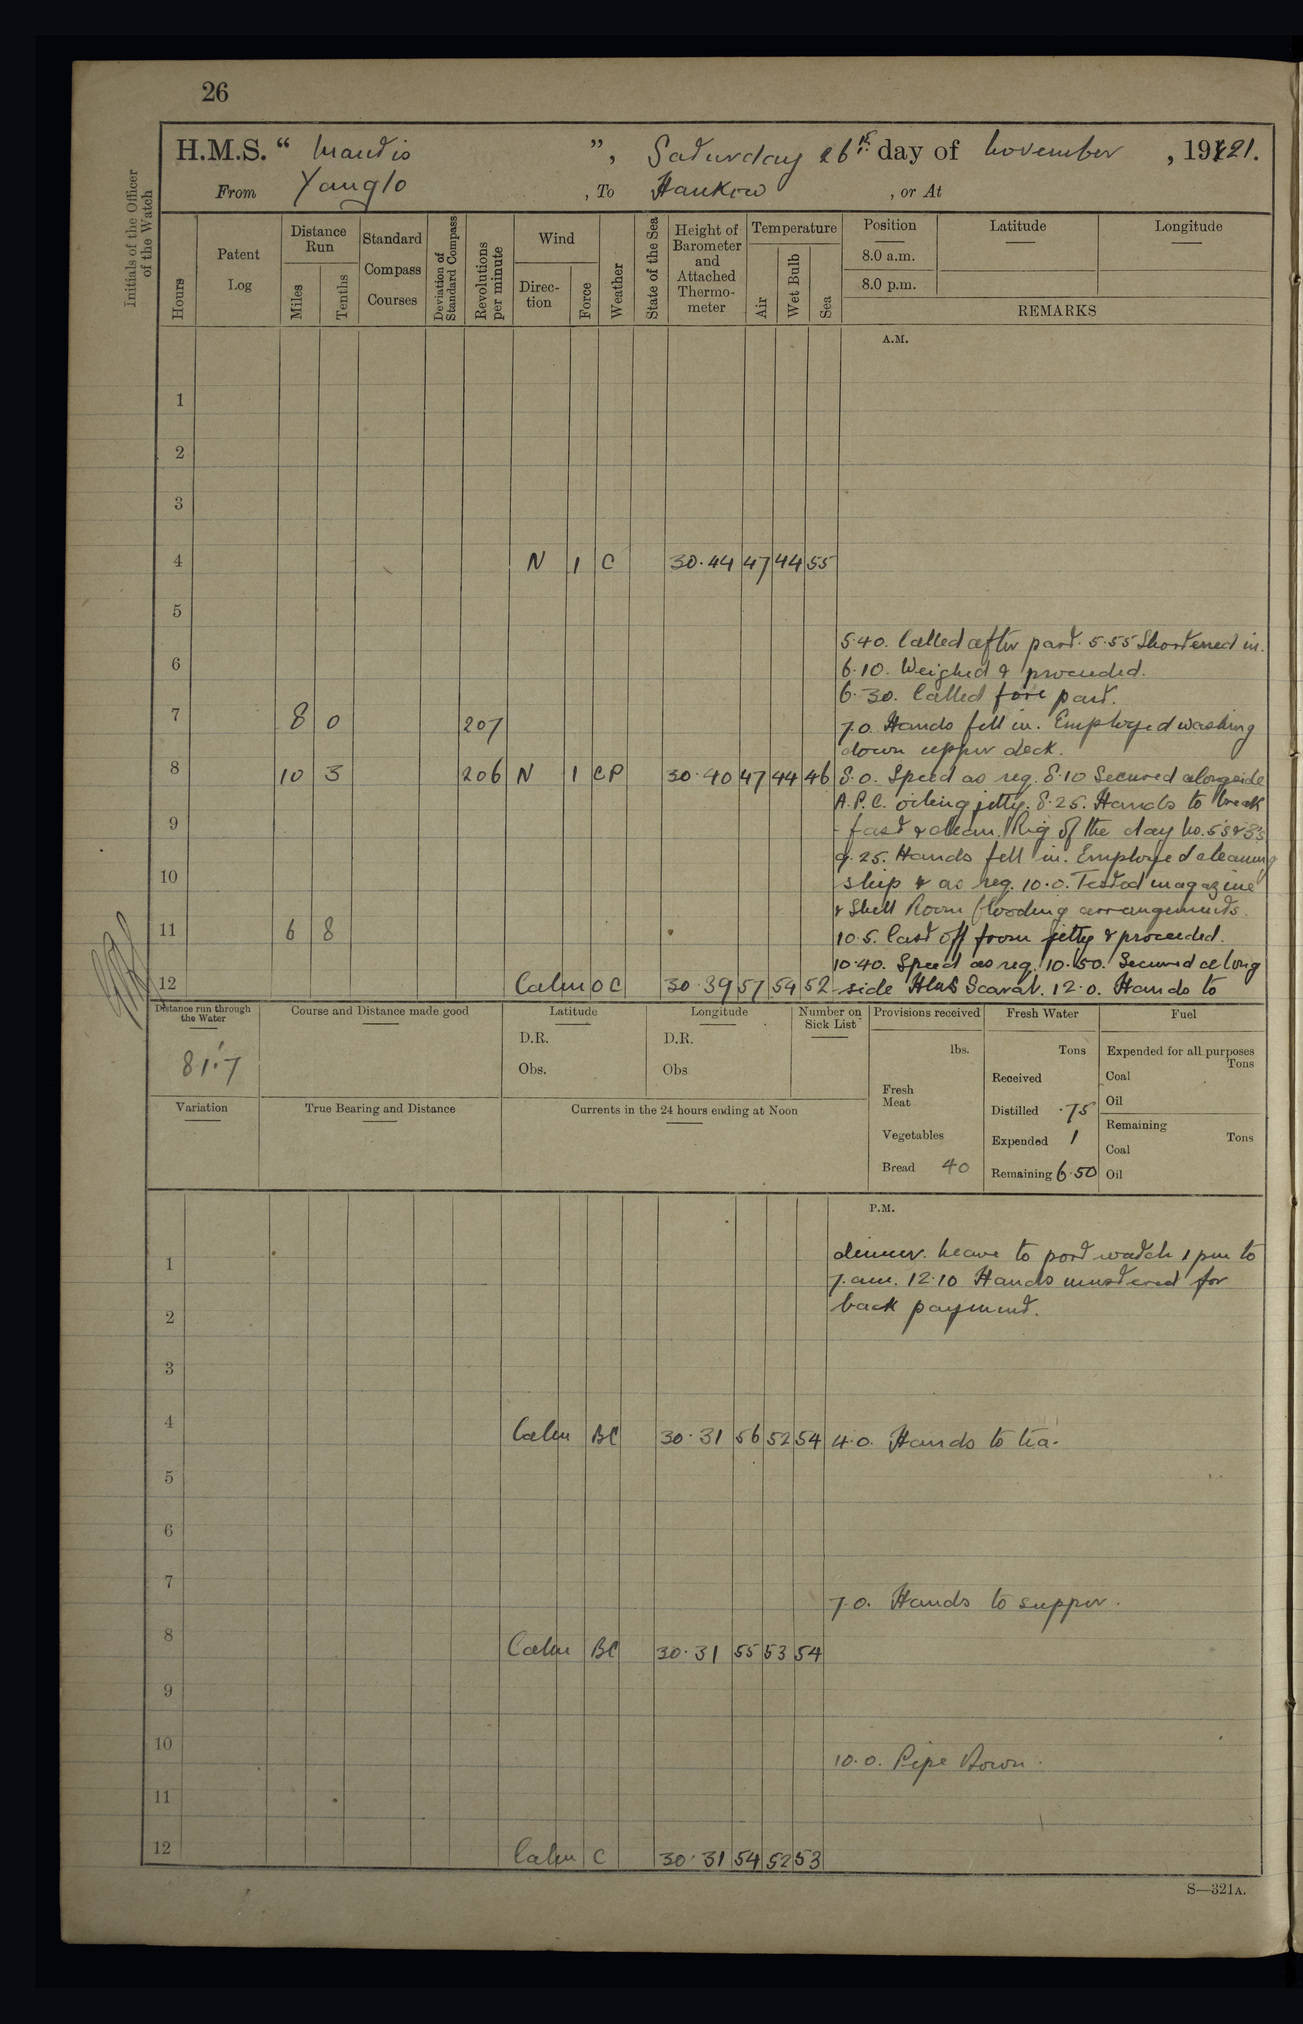 26
H.M.S. “ Mantis ”, Saturday 26th day of November , 1921.
From Yanglo , To Hankow , or At
Initials of the Officer of the Watch
Hours
Patent Log
Distance Run
Miles
Tenths
Standard Compass Courses
Deviation of Standard Compass
Revolutions per minute
Wind
Direction
Force
Weather
State of the Sea
Height of Barometer and Attached Thermometer
Temperature
Air
Wet Bulb
Sea
Position
8.0 a.m.
8.0 p.m.
Latitude
Longitude
REMARKS
A.M.
1
2
3
4 N 1 C 30.44 47 44 55
5
5.40. Called after part. 5.55 Shortened in.
6 6.10. Weighed & proceeded.
6.30. Called fore part.
7 8 0 207 7.0. Hands fell in. Employed washing
down upper deck.
8 10 3 206 N 1 CP 30.40 47 44 46 8.0. Speed as req. 8.10 Secured alongside
A.P.C. oiling jetty. 8.25. Hands to break
9 -fast & clean. Rig of the day No. 5's & 3's
9.25. Hands fell in. Employed cleaning
10 ship & as req. 10.0. Tested magazine
& Shell Room flooding arrangements.
11 6 8 10.5. Cast off from jetty & proceeded.
10.40. Speed as req. 10.50. Secured along
12 Calm 0 C 30.39 57 54 52 -side HMS Scarab. 12.0. Hands to
Distance run through the Water
81.7
Course and Distance made good
Latitude
D.R.
Obs.
Longitude
D.R.
Obs
Number on Sick List
Provisions received
lbs.
Fresh Meat
Vegetables
Bread 40
Fresh Water
Tons
Received
Distilled .75
Expended 1
Remaining 6.50
Fuel
Expended for all purposes
Tons
Coal
Oil
Remaining
Tons
Coal
Oil
Variation
True Bearing and Distance
Currents in the 24 hours ending at Noon
P.M.
1 dinner. Leave to port watch 1 pm to
7. am. 12.10 Hands mustered for
2 back payment.
3
4 Calm BC 30.31 56 52 54 4.0. Hands to tea.
5
6
7 7.0. Hands to supper.
8 Calm BC 30.31 55 53 54
9
10 10.0. Pipe Down.
11
12 Calm C 30.31 54 52 53
S—321A.